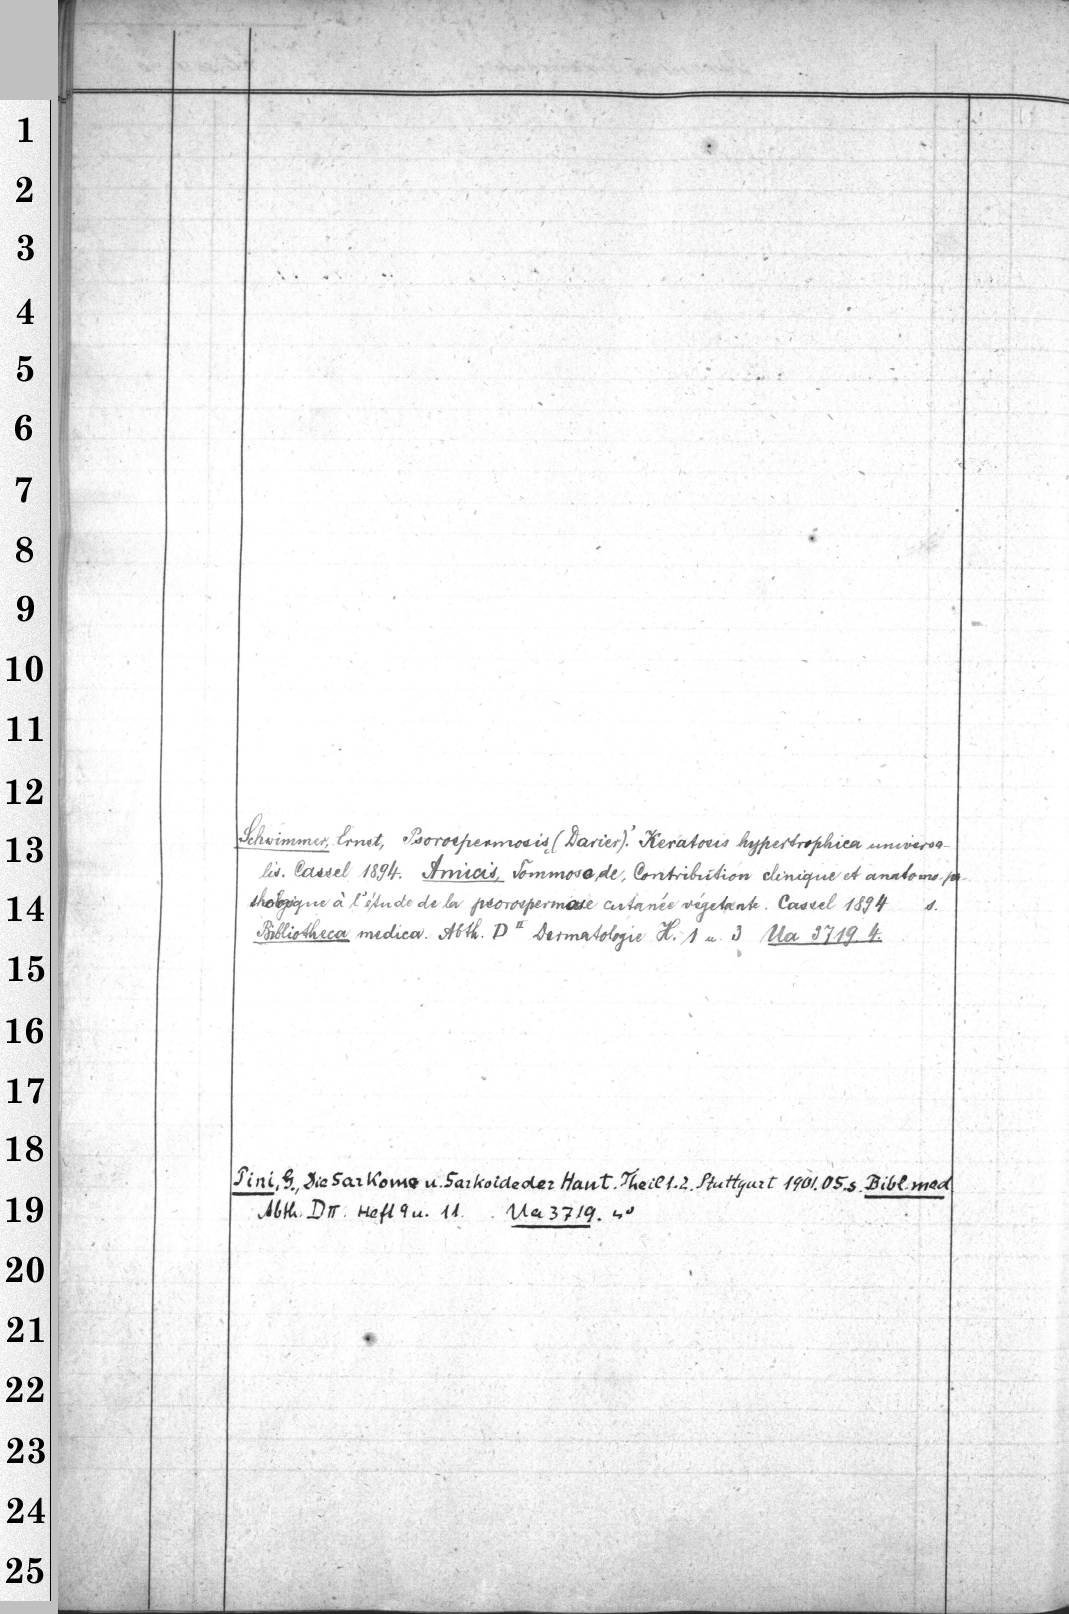 1
2
3
4
5
6
7
8
9
10
11
12
13
14
15
16
17
18
19
20
21
22
23
24
25
Schwimmer, Ernst, Psorospermosis (Darier). Keratosis hypertrophica universa-
lis. Cassel 1894. Amicis, Tommoso, de, Contribution clinique et anatomo-pa-
thologique à l'étude de la psorospermose cutanée végetante. Cassel 1894 s.
Bibliotheca medica. Abth. D II Dermatologie H. 1 u. 3 Ua 3719. 4.
Pini, G., Die Sarkome u. Sarkoide der Haut. Theil 1.2. Stuttgart 1901.05. s. Bibl. med
Abth. D II. Heft 9 u. 11. Ua 3719. 4°